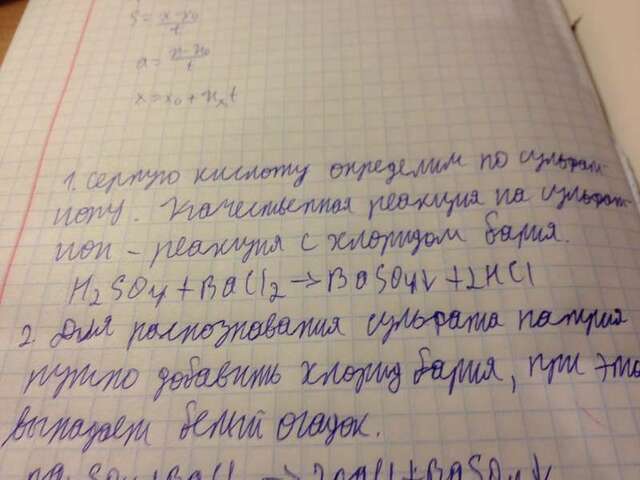 S = x-x₀/t
a = x-x₀/t
x = x₀ + xₓt
1. серную кислоту определим по сульфат-
иону. Качественная реакция на сульфат-
ион - реакция с хлоридом бария.
H₂SO₄ + BaCl₂ → BaSO₄↓ + 2HCl
2. Для распознавания сульфата натрия
нужно добавить хлорид бария, при это
выпадает белый осадок.
Na₂SO₄ + BaCl₂ → 2NaCl + BaSO₄↓